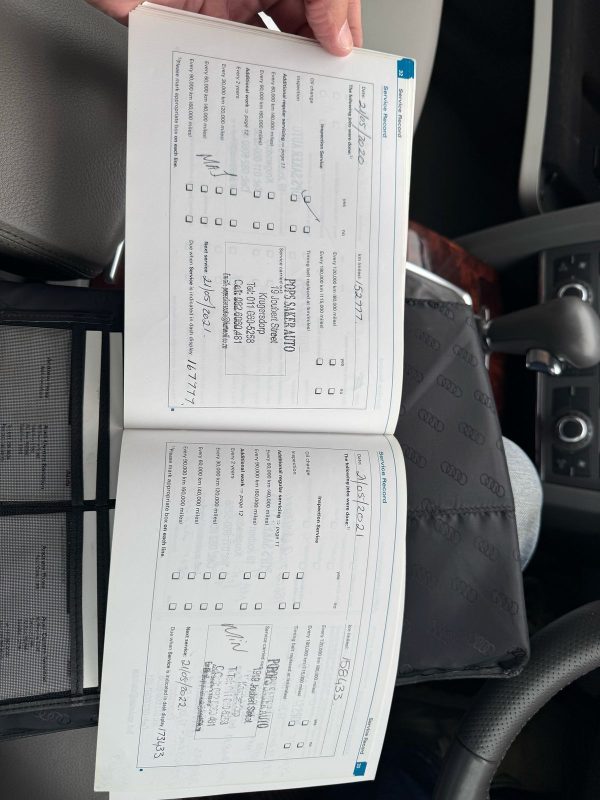 32
Service Record
Service Record
DATE: 21/05/2020
km (miles): 152777
The following jobs were done:¹⁾
Inspection Service
yes
no
Oil change
Inspection
Additional regular servicing ⇒ page 11
Every 60,000 km (40,000 miles)
Every 90,000 km (60,000 miles)
Additional work ⇒ page 12
Every 2 years
Every 30,000 km (20,000 miles)
Every 60,000 km (40,000 miles)
Every 90,000 km (60,000 miles)
¹⁾Please mark appropriate box on each line.
yes
no
Every 120,000 km (80,000 miles)
Every 180,000 km (115,000 miles)
Timing belt replaced at km/miles:
Service carried
POPS SAKER AUTO
19 Joubert Street
Krugersdorp
Tel: 011 660-5258
Cell: 082 0960 461
MAJ
Next service: 21/05/2021.
Due when Service is indicated in dash display 167777.
Service Record
33
Service Record
DATE: 21/05/2021
km (miles): 158433
The following jobs were done:¹⁾
Inspection Service
yes
no
Oil change
Inspection
Additional regular servicing ⇒ page 11
Every 60,000 km (40,000 miles)
Every 90,000 km (60,000 miles)
Additional work ⇒ page 12
Every 2 years
Every 30,000 km (20,000 miles)
Every 60,000 km (40,000 miles)
Every 90,000 km (60,000 miles)
¹⁾Please mark appropriate box on each line.
yes
no
Every 120,000 km (80,000 miles)
Every 180,000 km (115,000 miles)
Timing belt replaced at km/miles:
Service carried
POPS SAKER AUTO
Joubert Street
MIN
Next service: 21/05/2022.
Due when Service is indicated in dash display 173433